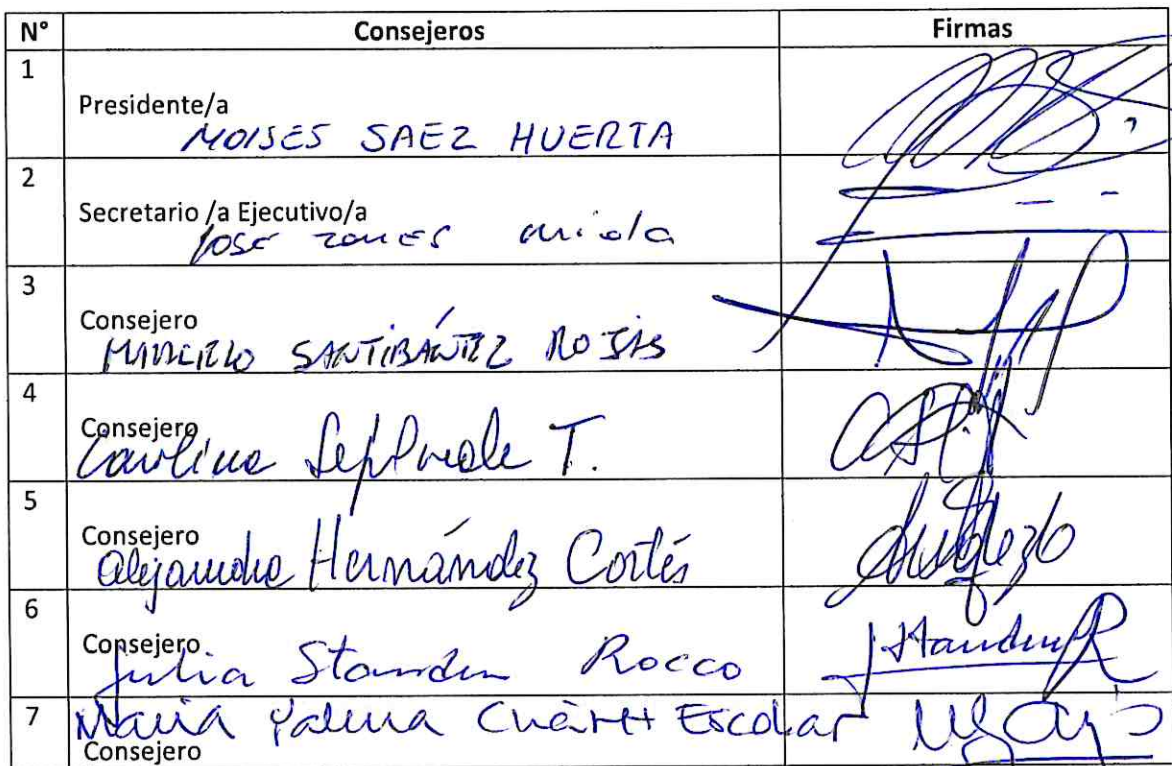 N° Consejeros Firmas
1
Presidente/a
MOISES SAEZ HUERTA
2
Secretario /a Ejecutivo/a
JOSE
3
Consejero
MARCELO SANTIBÁÑEZ ROJAS
4
Consejero
Carolina Sepúlveda T.
5
Consejero
Alejandra Hernández Cortés
6
Consejero
Julia Standen Rocco
7
Maria Escobar
Consejero